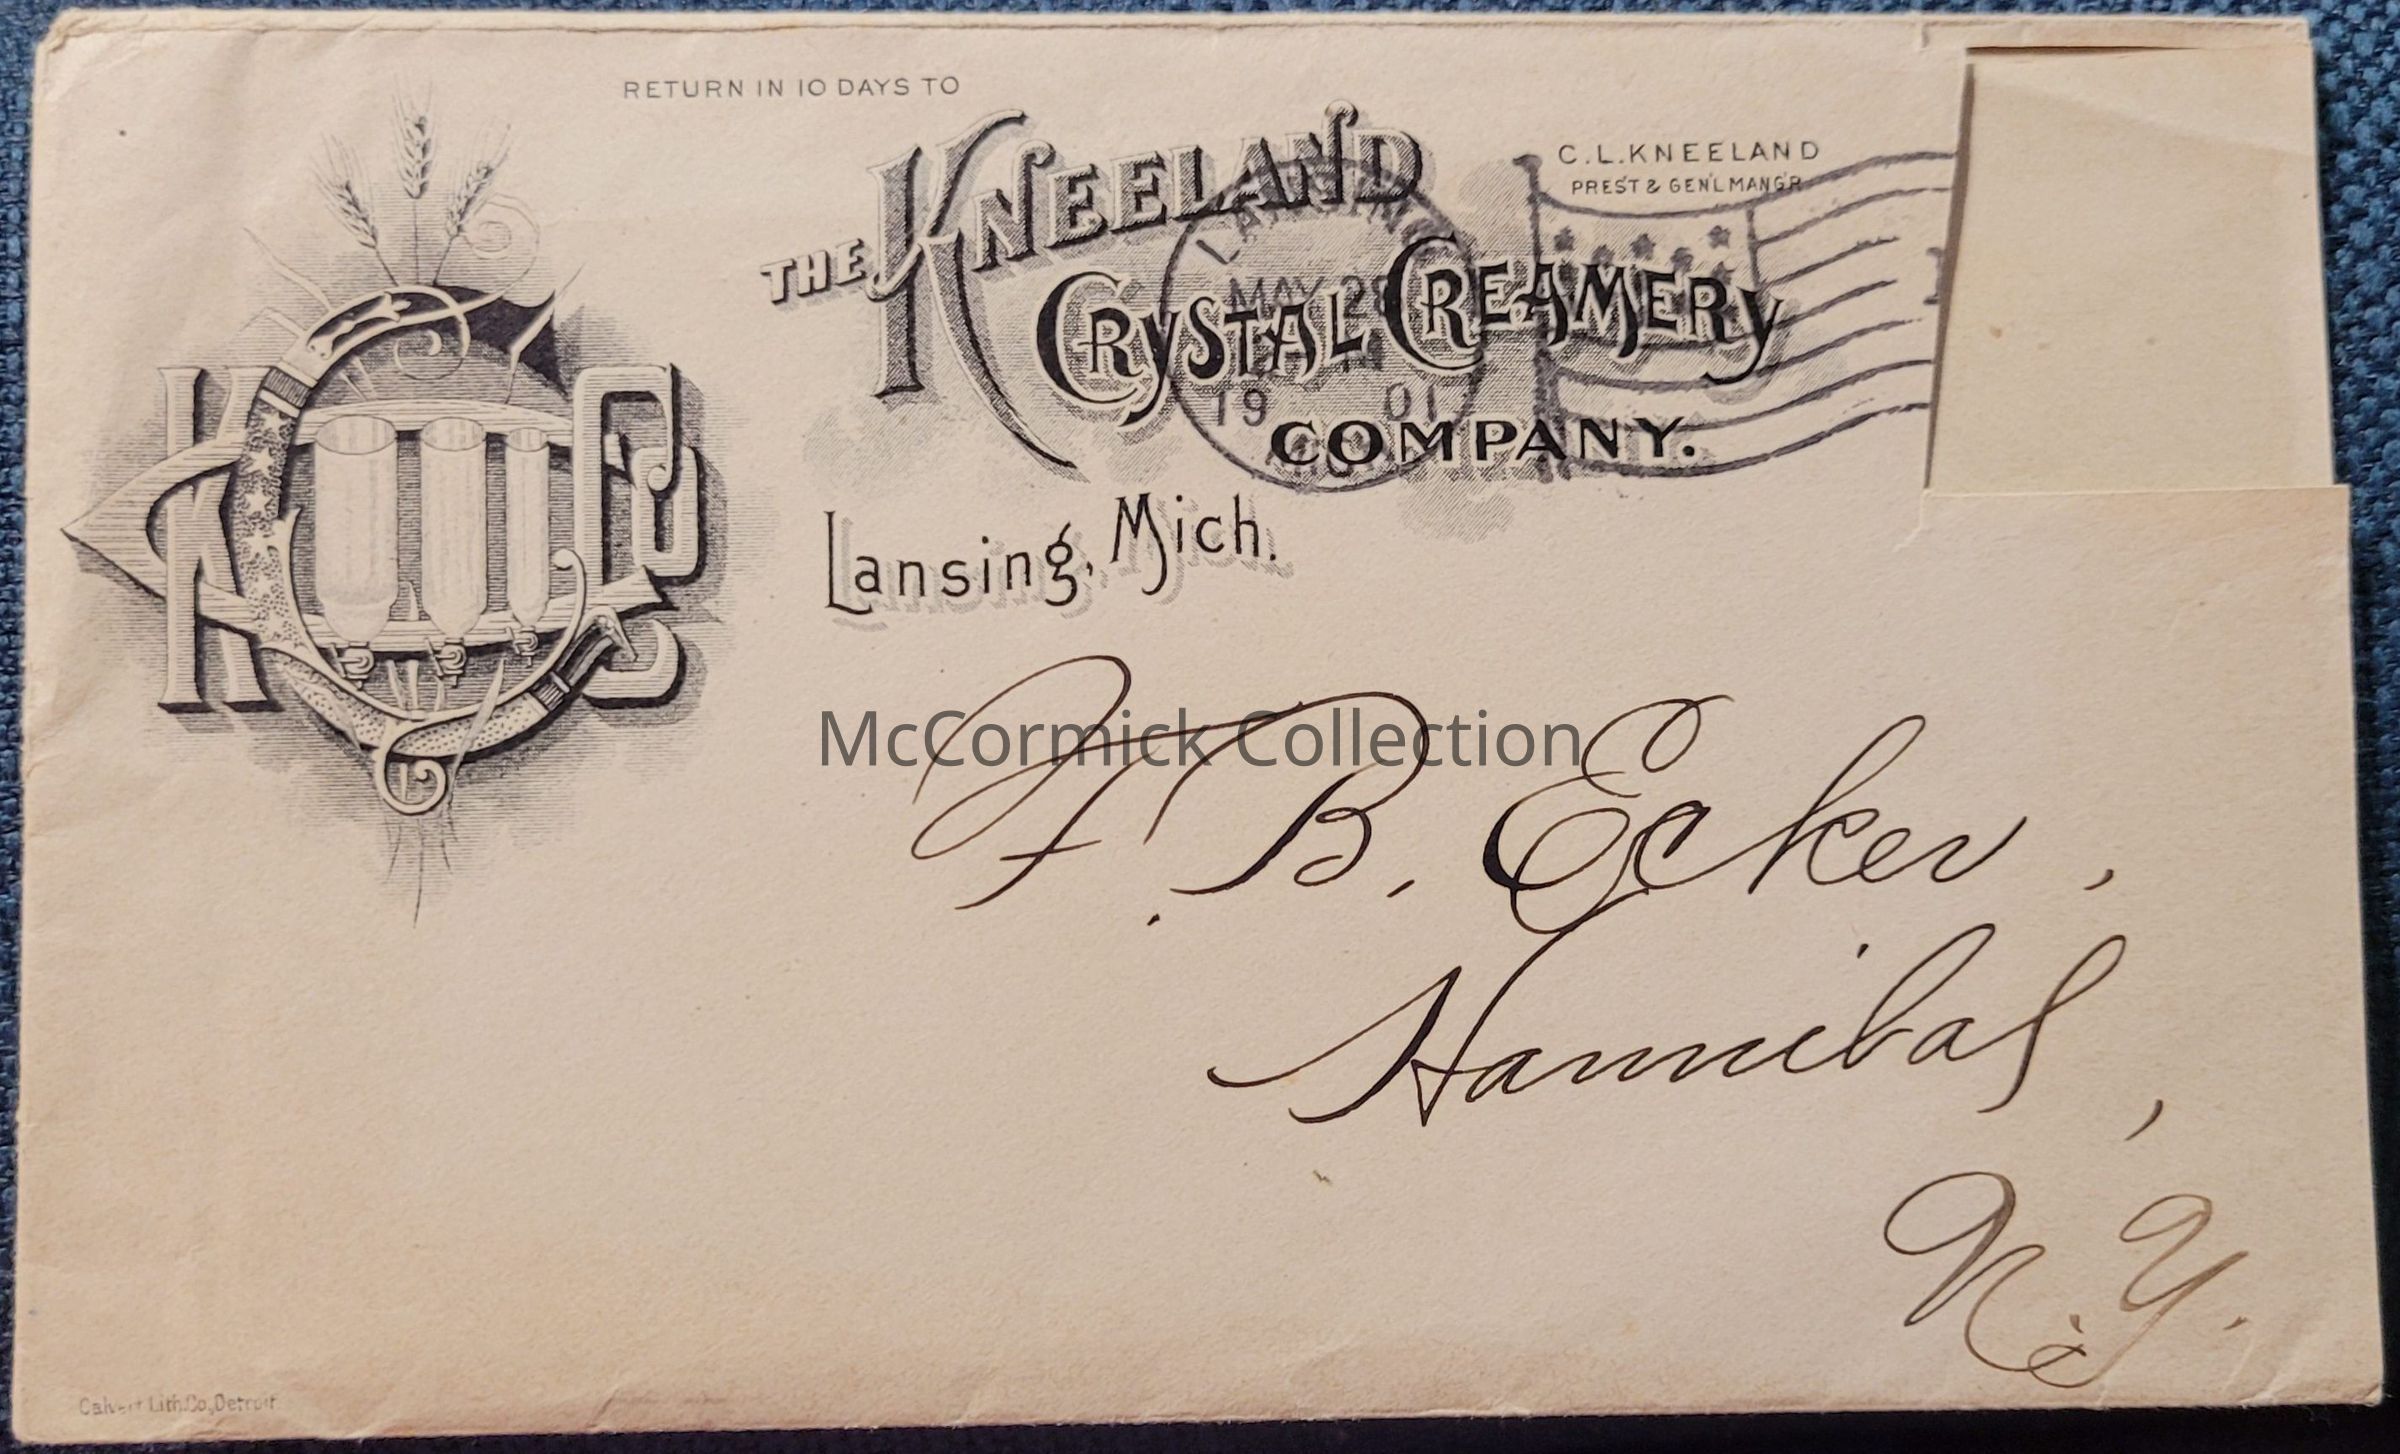 RETURN IN 10 DAYS TO
THE KNEELAND
CRYSTAL CREAMERY
COMPANY.
Lansing, Mich.
C.L. KNEELAND
PRES'T & GEN'L MANG'R
LANSING
MAY
19 01
KCCCO
McCormick Collection
F. B. Ecker,
Hannibal,
N.Y.
Calvert Lith. Co., Detroit